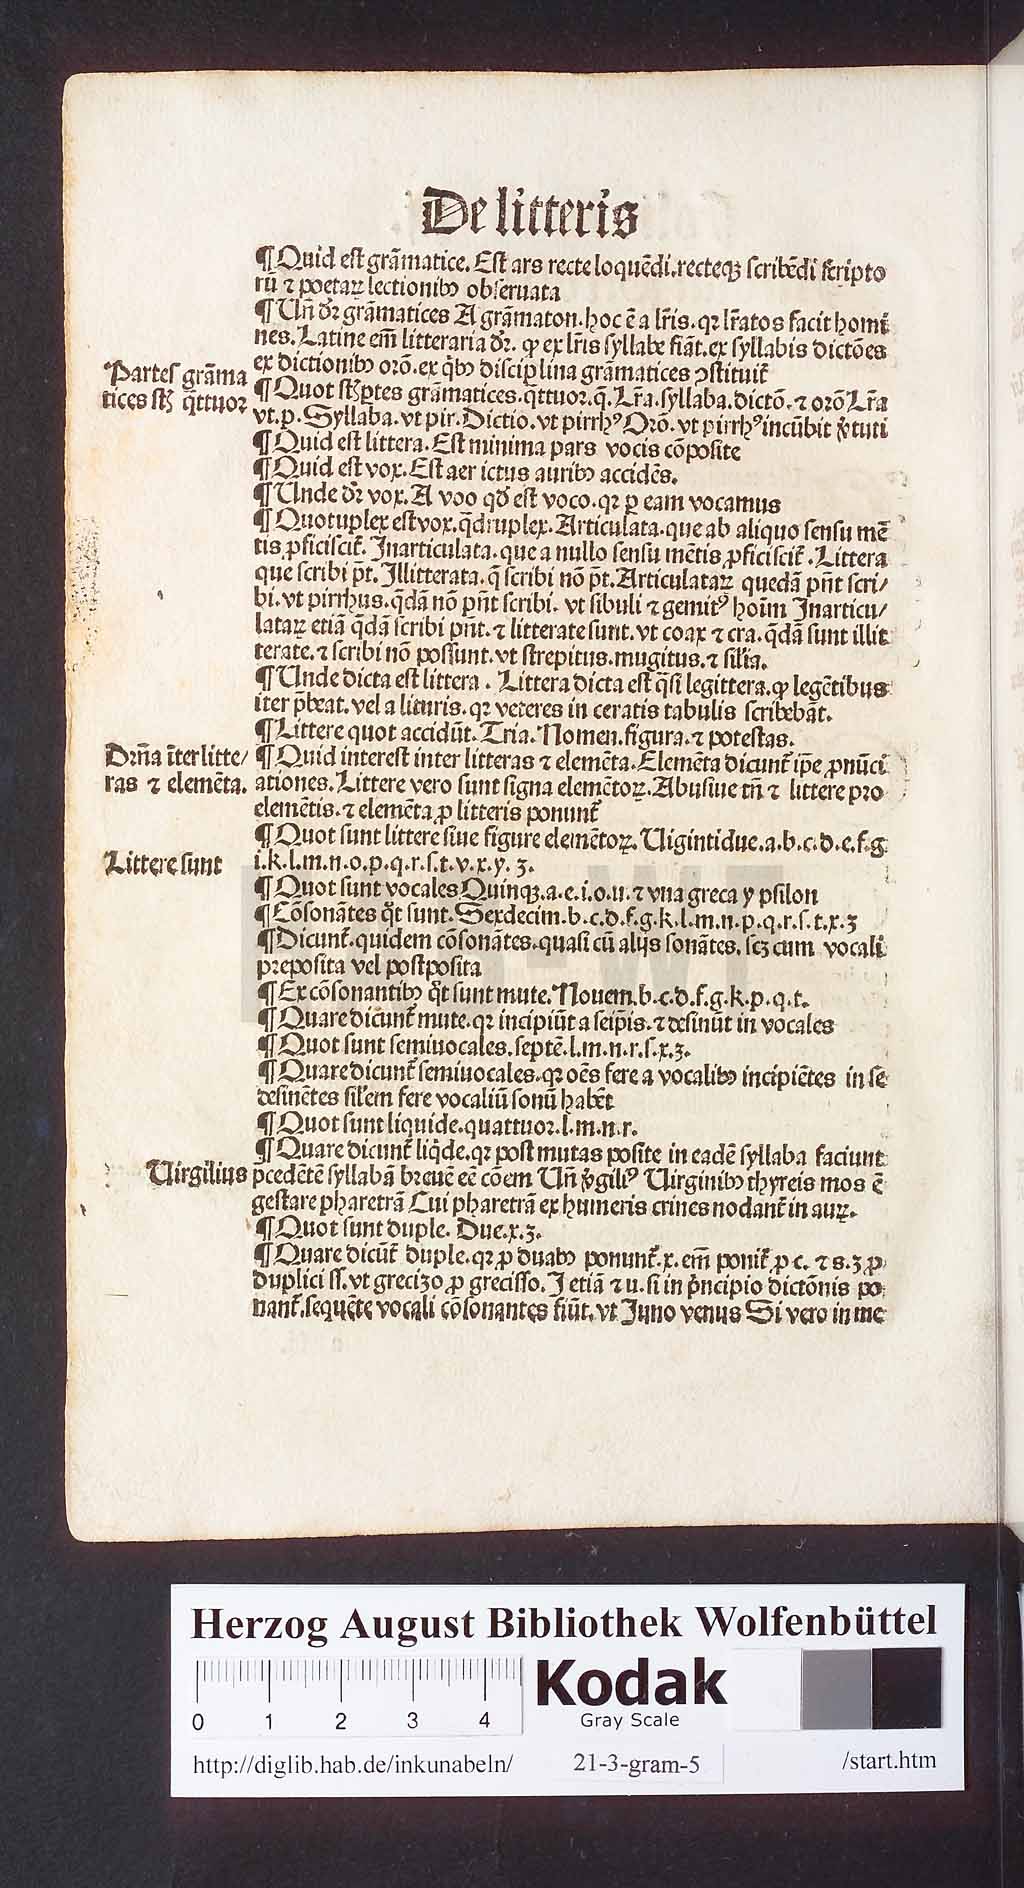 De litteris
¶ Quid est grãmatice. Est ars recte loquẽdi. recteqꝫ scribẽdi scripto
rũ ⁊ poetaꝝ lectionibꝰ obseruata
¶ Uñ dr̃ grãmatices A grãmaton. hoc ẽ a lr̃is. qꝛ lr̃atos facit homi
nes. Latine em̃ litteraria dr̃. ꝙ ex lr̃is syllabe fiãt. ex syllabis dictões
ex dictionibꝰ orõ. ex qͥbꝰ disciplina grãmatices ꝯstituit̃
Partes grãma
tices sũt q̃ttuor
¶ Quot sũt ptes grãmatices. q̃ttuor. q̃. Lr̃a. syllaba. dictõ. ⁊ orõ Lr̃a
vt. p. Syllaba. vt pir. Dictio. vt pirrhꝰ Orõ. vt pirrhꝰ incũbit v̓tuti
¶ Quid est littera. Est minima pars vocis cõposite
¶ Quid est vox. Est aer ictus auribꝰ accidẽs.
¶ Unde dr̃ vox. A voo qđ est voco. qꝛ ꝑ eam vocamus
¶ Quotuplex est vox. q̃druplex. Articulata. que ab aliquo sensu mẽ
tis ꝓficiscit̃. Inarticulata. que a nullo sensu mẽtis ꝓficiscit̃. Littera
que scribi p̃t. Illitterata. q̃ scribi nõ p̃t. Articulataꝝ quedã pñt scri/
bi. vt pirrhus. q̃dã nõ pñt scribi. vt sibuli ⁊ gemitꝰ hoĩm Inarticu/
lataꝝ etiã q̃dã scribi pñt. ⁊ litterate sunt. vt coax ⁊ cra. q̃dã sunt illit
terate. ⁊ scribi nõ possunt. vt strepitus. mugitus. ⁊ sil̃ia.
¶ Unde dicta est littera. Littera dicta est q̃si legittera. ꝙ legẽtibus
iter p̃beat. vel a lituris. qꝛ veteres in ceratis tabulis scribebãt.
¶ Littere quot accidũt. Tria. Nomen. figura. ⁊ potestas.
Drña ĩter litte/
ras ⁊ elemẽta.
¶ Quid interest inter litteras ⁊ elemẽta. Elemẽta dicunt̃ ip̃e ꝓnũci
ationes. Littere vero sunt signa elemẽtoꝝ. Abusiue tñ ⁊ littere pro
elemẽtis. ⁊ elemẽta ꝓ litteris ponunt̃
¶ Quot sunt littere siue figure elemẽtoꝝ. Uigintidue. a. b. c. d. e. f. g
Littere sunt
i. k. l. m. n. o. p. q. r. s. t. v. x. y. ʒ.
¶ Quot sunt vocales Quinqꝫ. a. e. i. o. u. ⁊ vna greca y psilon
¶ Cõsonãtes qͦt sunt. Sexdecim. b. c. d. f. g. k. l. m. n. p. q. r. s. t. x. ʒ
¶ Dicunt̃. quidem cõsonãtes. quasi cũ alijs sonãtes. scꝫ cum vocali
preposita vel postposita
¶ Ex cõsonantibꝰ qͦt sunt mute. Nouem. b. c. d. f. g. k. p. q. t.
¶ Quare dicunt̃ mute. qꝛ incipiũt a seip̃is. ⁊ desinũt in vocales
¶ Quot sunt semiuocales. septẽ. l. m. n. r. s. x. ʒ.
¶ Quare dicunt̃ semiuocales. qꝛ oẽs fere a vocalibꝰ incipiẽtes in se
desinẽtes sil̃em fere vocaliũ sonũ habẽt
¶ Quot sunt liquide. quattuor. l. m. n. r.
¶ Quare dicunt̃ liqͥde. qꝛ post mutas posite in eadẽ syllaba faciunt
Uirgilius
pcedẽtẽ syllabã breuẽ eẽ cõem Uñ v̓giliꝰ Uirginibꝰ thyreis mos ẽ
gestare pharetrã Cui pharetrã ex humeris crines nodant̃ in auꝝ.
¶ Quot sunt duple. Due. x. ʒ.
¶ Quare dicũt̃ duple. qꝛ ꝓ duabꝰ ponunt̃. x. em̃ ponit̃ ꝓ c. ⁊ s. ʒ ꝓ
duplici ss. vt greciʒo ꝓ grecisso. I etiã ⁊ u. si in pͥncipio dictõnis po
nant̃. sequẽte vocali cõsonantes fiũt. vt Juno venus Si vero in me
Herzog August Bibliothek Wolfenbüttel
0 1 2 3 4
Kodak
Gray Scale
http://diglib.hab.de/inkunabeln/ 21-3-gram-5 /start.htm